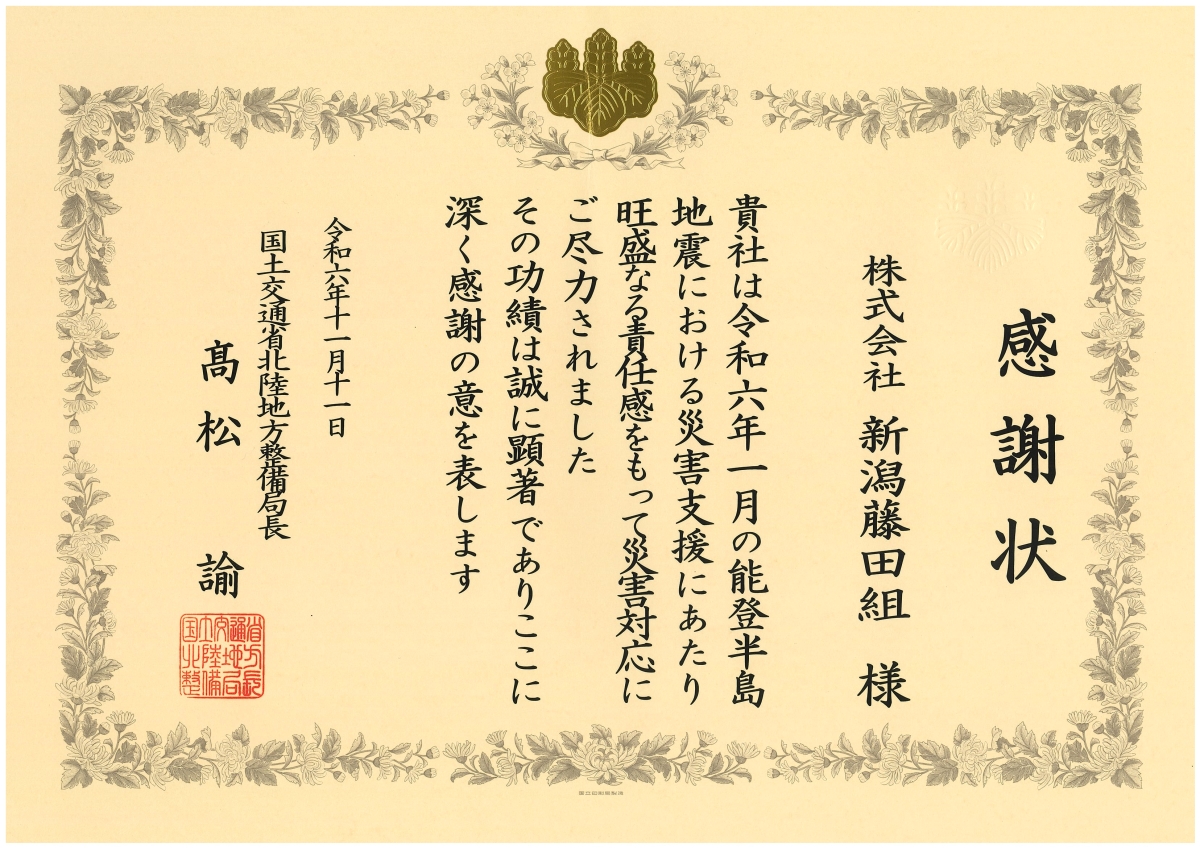 感謝状
株式会社 新潟藤田組 様
貴社は令和六年一月の能登半島
地震における災害支援にあたり
旺盛なる責任感をもって災害対応に
ご尽力されました
その功績は誠に顕著でありここに
深く感謝の意を表します
令和六年十一月十一日
国土交通省北陸地方整備局長
髙松 諭